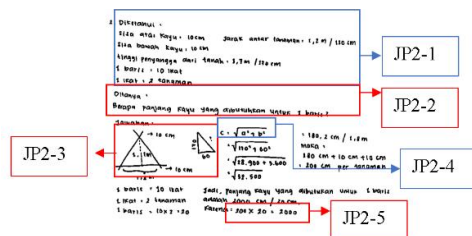 Diketahui :
Sisa atas kayu : 10cm Jarak antar tanaman : 1,2 m / 120 cm
Sisa bawah kayu : 10 cm
tinggi penyangga dari tanah : 1,7m / 170 cm
1 baris = 10 ikat
1 ikat = 2 tanaman
JP2-1
Ditanya :
Berapa panjang kayu yang dibutuhkan untuk 1 baris?
JP2-2
Jawaban :
→ 10 cm
→ 10 cm
60
JP2-3
c = √a² + b²
= √32.500
= 180,2 cm / 1,8m
Maka :
180 cm + 10 cm + 10 cm
= 200 cm per tanaman
JP2-4
1 baris = 10 ikat
1 ikat = 2 tanaman
1 baris = 10 x 2 = 20
Jadi, panjang kayu yang dibutuhkan untuk 1 baris
adalah
Karena : 200 x 20 = 2000
JP2-5